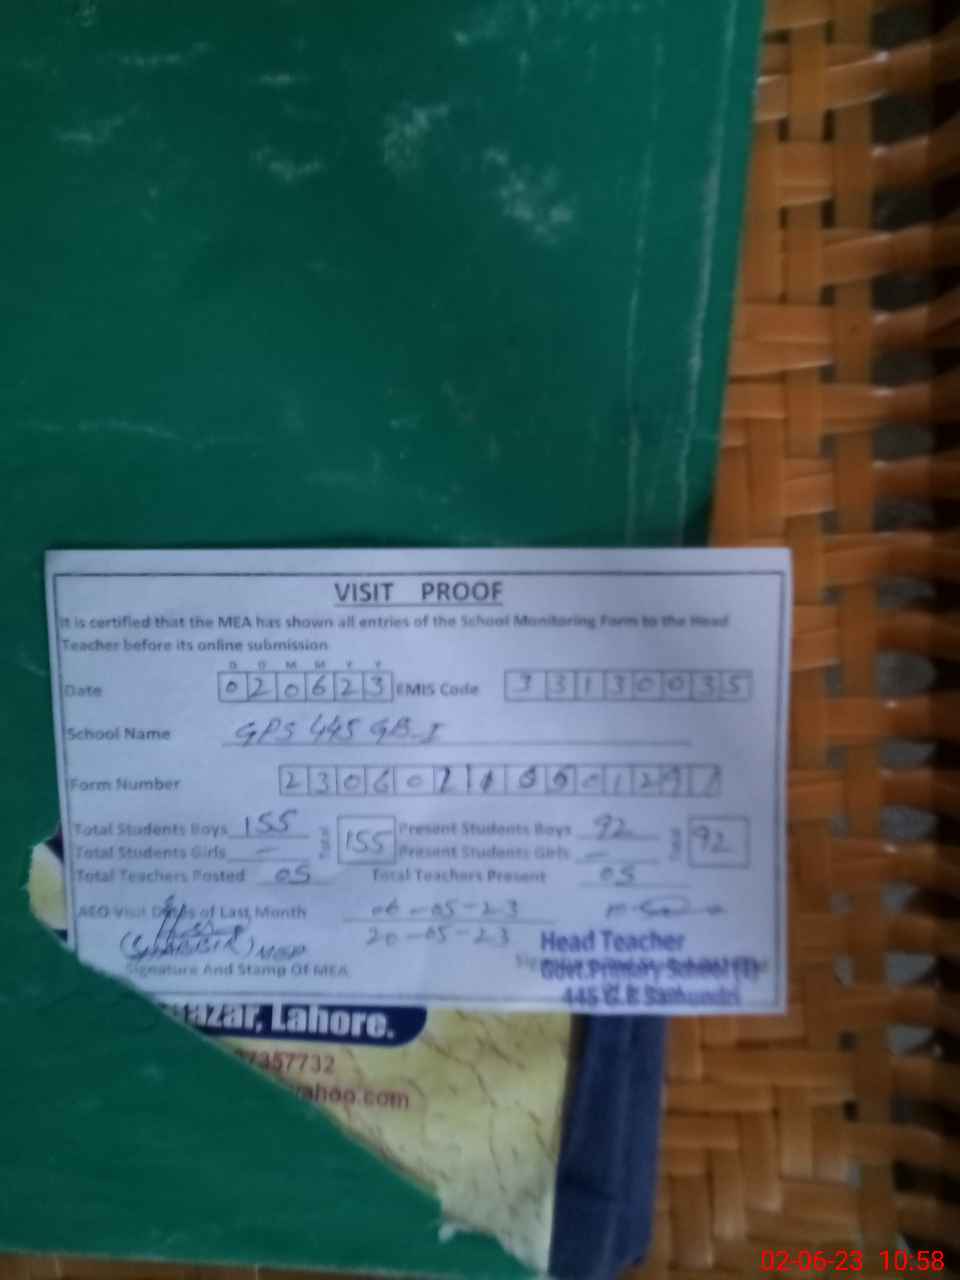 VISIT PROOF
It is certified that the MEA has shown all entries of the School Monitoring Form to the Head
Teacher before its online submission
D D M M Y Y
Date 020623 EMIS Code 33130035
School Name GPS 445 GB-I
Form Number
Total Students Boys 155 Total 155 Present Students Boys 92 Total 92
Total Students Girls — Present Students Girls —
Total Teachers Posted 05 Total Teachers Present 05
AEO Visit Dates of Last Month 06-05-23
20-05-23
(SHABBIR)
Head Teacher
Signature And Stamp Of MEA
Govt. Primary School (I)
445 G.B Samundri
azar, Lahore.
7357732
yahoo.com
02-06-23 10:58